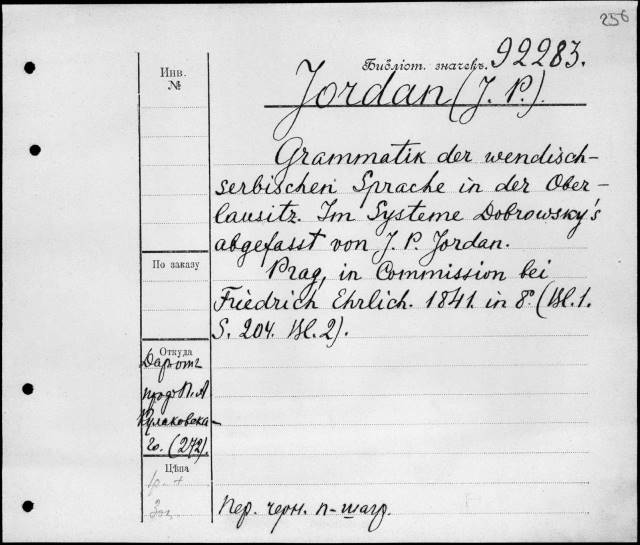 256
Библіот. значекъ. 92283.
Инв.
№
Jordan (J. P.).
Grammatik der wendisch-
serbischen Sprache in der Ober-
lausitz. Im Systeme Dobrowsky's
abgefasst von J. P. Jordan.
По заказу
Prag, in Commission bei
Friedrich Ehrlich. 1841. in 8º. (Bl. 1.
S. 204. Bl. 2).
Откуда
Дар от
проф П. А
Кулаковска-
го. (272).
Цѣна
Пер. черн. п-шагр.